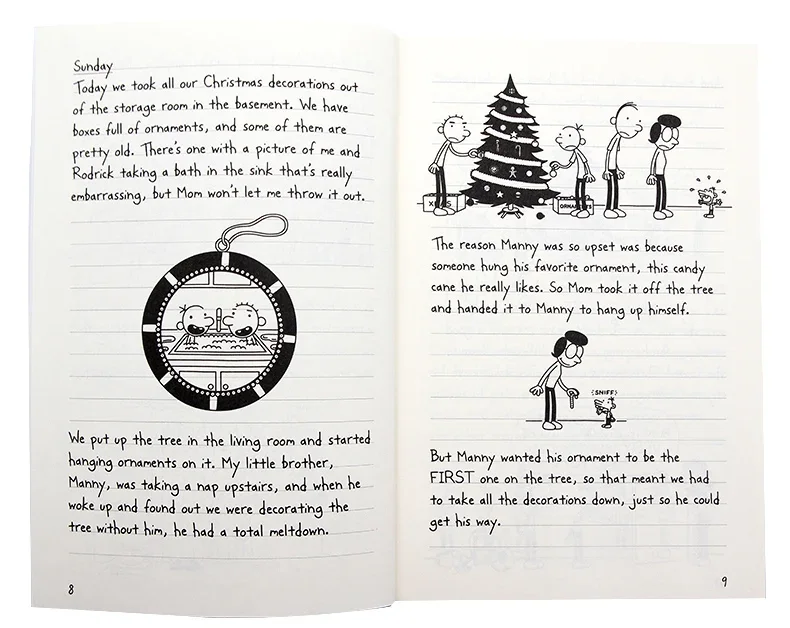 Sunday
Today we took all our Christmas decorations out
of the storage room in the basement. We have
boxes full of ornaments, and some of them are
pretty old. There's one with a picture of me and
Rodrick taking a bath in the sink that's really
embarrassing, but Mom won't let me throw it out.
We put up the tree in the living room and started
hanging ornaments on it. My little brother,
Manny, was taking a nap upstairs, and when he
woke up and found out we were decorating the
tree without him, he had a total meltdown.
8
ORNAMENTS
The reason Manny was so upset was because
someone hung his favorite ornament, this candy
cane he really likes. So Mom took it off the tree
and handed it to Manny to hang up himself.
SNIFF
But Manny wanted his ornament to be the
FIRST one on the tree, so that meant we had
to take all the decorations down, just so he could
get his way.
9